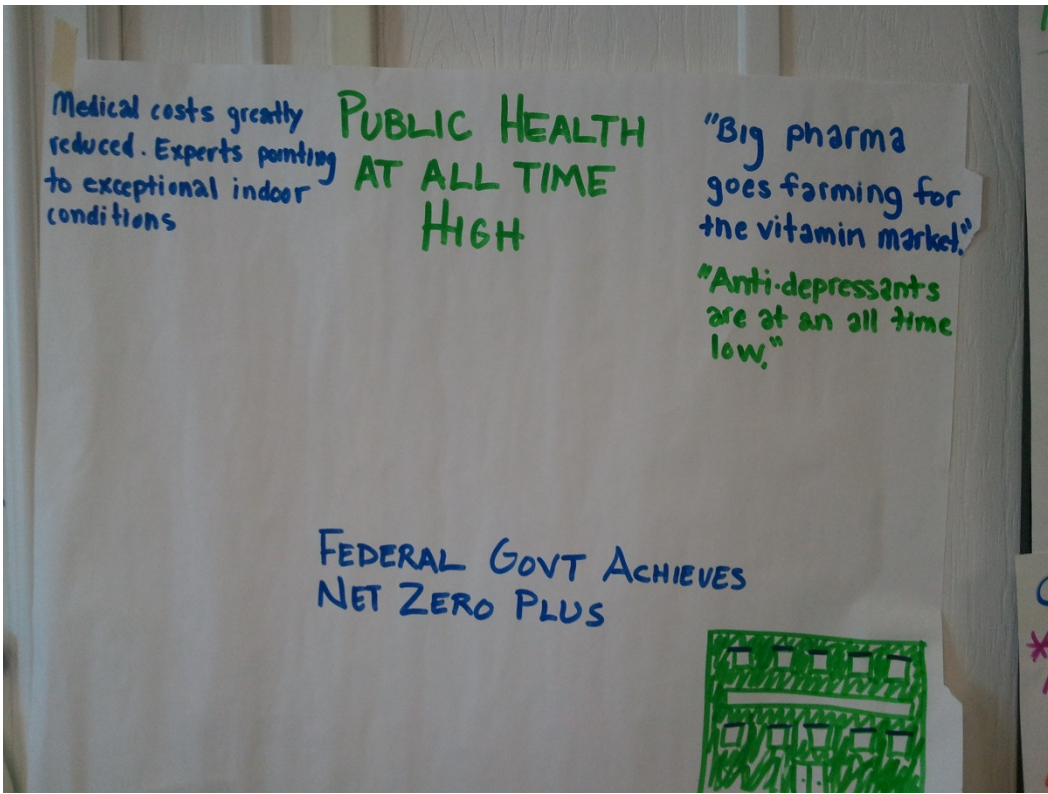 Medical costs greatly
reduced. Experts pointing
to exceptional indoor
conditions
PUBLIC HEALTH
AT ALL TIME
HIGH
"Big pharma
goes farming for
the vitamin market."
"Anti-depressants
are at an all time
low."
FEDERAL GOVT ACHIEVES
NET ZERO PLUS